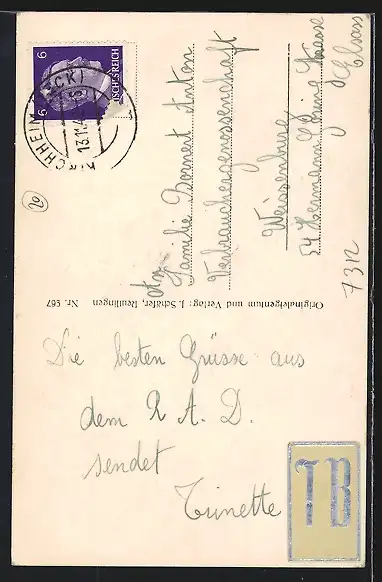 6
6
DEUTSCHES REICH
KIRCHHEIM (TECK)
13.11.4
20
An
Familie Bornert Anton
Verbrauchergenossenschaft
Weissenburg
54 Hermann Göring Strasse
Elsass
7312
Originaleigentum und Verlag: J. Schäfer, Reutlingen Nr. 567
Die besten Grüsse aus
dem R. A. D.
sendet
Tünette
TB